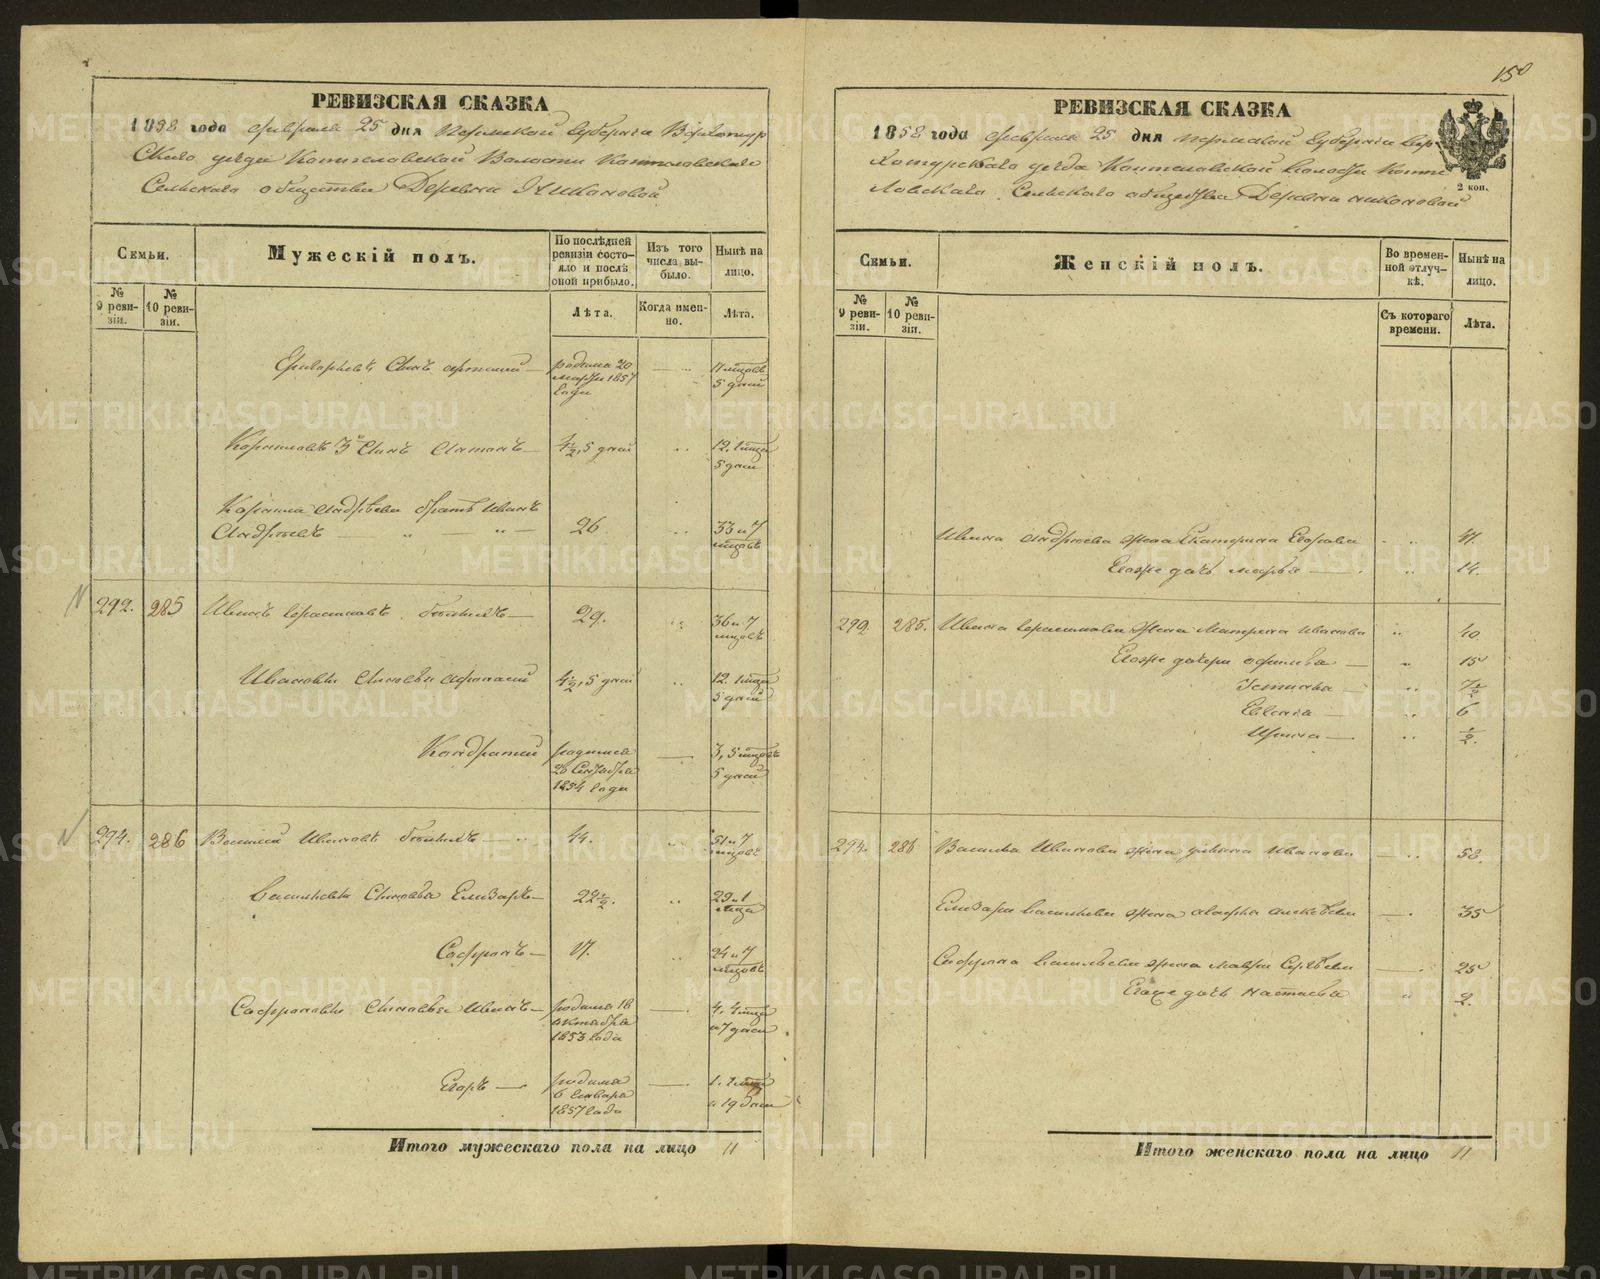 150
РЕВИЗСКАЯ СКАЗКА
1858 года февраля 25 дня Пермской Губернiи Верхотур
скаго уезда Коптеловской Волости Коптеловскаго
Сельскаго общества Деревни Никоновой
Семьи.
Мужескій полъ.
По послѣдней ревизіи состояло и послѣ оной прибыло.
Изъ того числа выбыло.
Нынѣ на лицо.
№ 9 ревизіи.
№ 10 ревизіи.
Лѣта.
Когда именно.
Лѣта.
Григорьевъ Сынъ — родился 20 Марта 1857 года — 11 мцовъ 5 дней
3й Сынъ — 4½, 5 дней — 12, 1 мца 5 дней
Андреева братъ Иванъ
Андреевъ — 26 — 33 и 7 мцовъ
292. 285 Иванъ — 29. — 36 и 7 мцовъ
Ивановы Сыновья Афанасий — 4½, 5 дней — 12, 1 мца 5 дней
Кондратий — родился 20 Сентября 1854 года — 3, 5 мцовъ 5 дней
294. 286 Василий Ивановъ — 44. — 51 и 7 мцовъ
Васильевы Сыновья Елизаръ — 22½. — 29 и 1 мца
Софронъ — 17. — 24 и 7 мцовъ
Софроновы Сыновья Иванъ — родился 18 октября 1853 года — 4, 4 мца и 7 дней
Егоръ — родился 6 Генваря 1857 года — 1. 1 мца и 19 дней
Итого мужескаго пола на лицо 11
РЕВИЗСКАЯ СКАЗКА
1858 года февраля 25 дня Пермской Губернiи Вер
хотурскаго уезда Коптеловской Волости Копте
ловскаго Сельскаго общества Деревни Никоновой
2 коп.
Семьи.
Женскій полъ.
Во временной отлучкѣ.
Нынѣ на лицо.
№ 9 ревизіи.
№ 10 ревизіи.
Съ котораго времени.
Лѣта.
Ивана Андреева жена Екатерина Егорова — 41.
Егоже дочь Марья — 14.
292 285. Ивана жена Матрена Иванова — 40
Егоже дочери — 15
Устинья — 7½
Евгенiя — 6
Ирина — ½.
294. 286 Василья Иванова жена Ульяна Иванова — 58.
Елизара Васильева жена Марфа — 35
Софрона Васильева жена Мавра — 25
Егоже дочь Настасья — 2.
Итого женскаго пола на лицо 11
METRIKI.GASO-URAL.RU